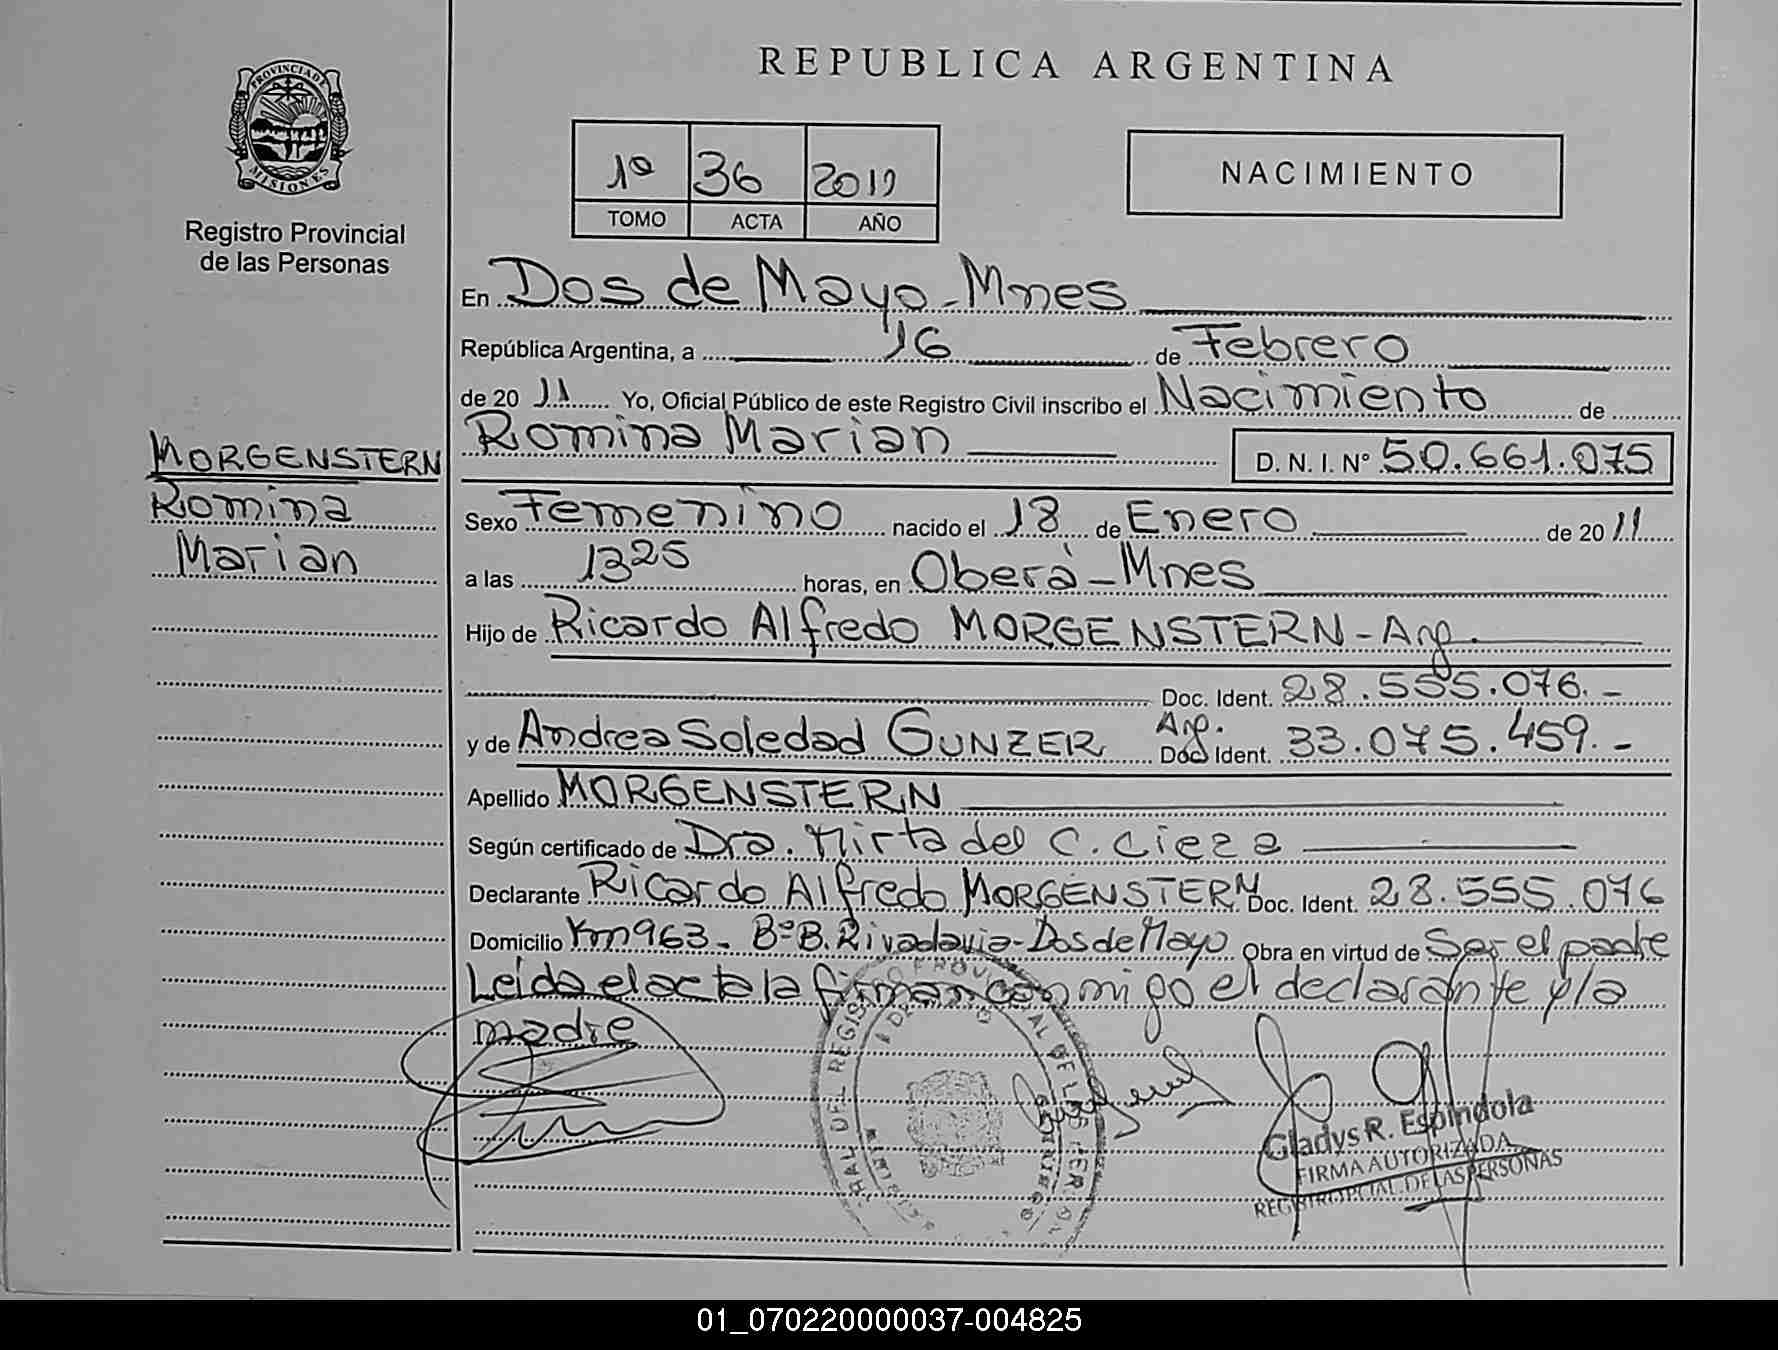 PROVINCIA DE
MISIONES
Registro Provincial
de las Personas
MORGENSTERN
Romina
Marian
REPUBLICA ARGENTINA
1º 36 2011
TOMO ACTA AÑO
NACIMIENTO
En Dos de Mayo - Mnes
República Argentina, a 16 de Febrero
de 20 11 Yo, Oficial Público de este Registro Civil inscribo el Nacimiento de
Romina Marian D. N. I. Nº 50.661.075
Sexo Femenino nacido el 18 de Enero de 20 11
a las 13 25 horas, en Oberá - Mnes
Hijo de Ricardo Alfredo MORGENSTERN - Arg.
Doc. Ident. 28.555.076. -
y de Andrea Soledad GUNZER Arg. Doc Ident. 33.075.459. -
Apellido MORGENSTERN
Según certificado de Dra. Mirta del C. Cieza
Declarante Ricardo Alfredo MORGENSTERN Doc. Ident. 28.555.076
Domicilio Km 963 - Bº B. Rivadavia - Dos de Mayo Obra en virtud de Ser el padre
Leída el acta la firman conmigo el declarante y la
madre
Gladys R. Espindola
FIRMA AUTORIZADA
REGISTRO PCIAL. DE LAS PERSONAS
01_070220000037-004825